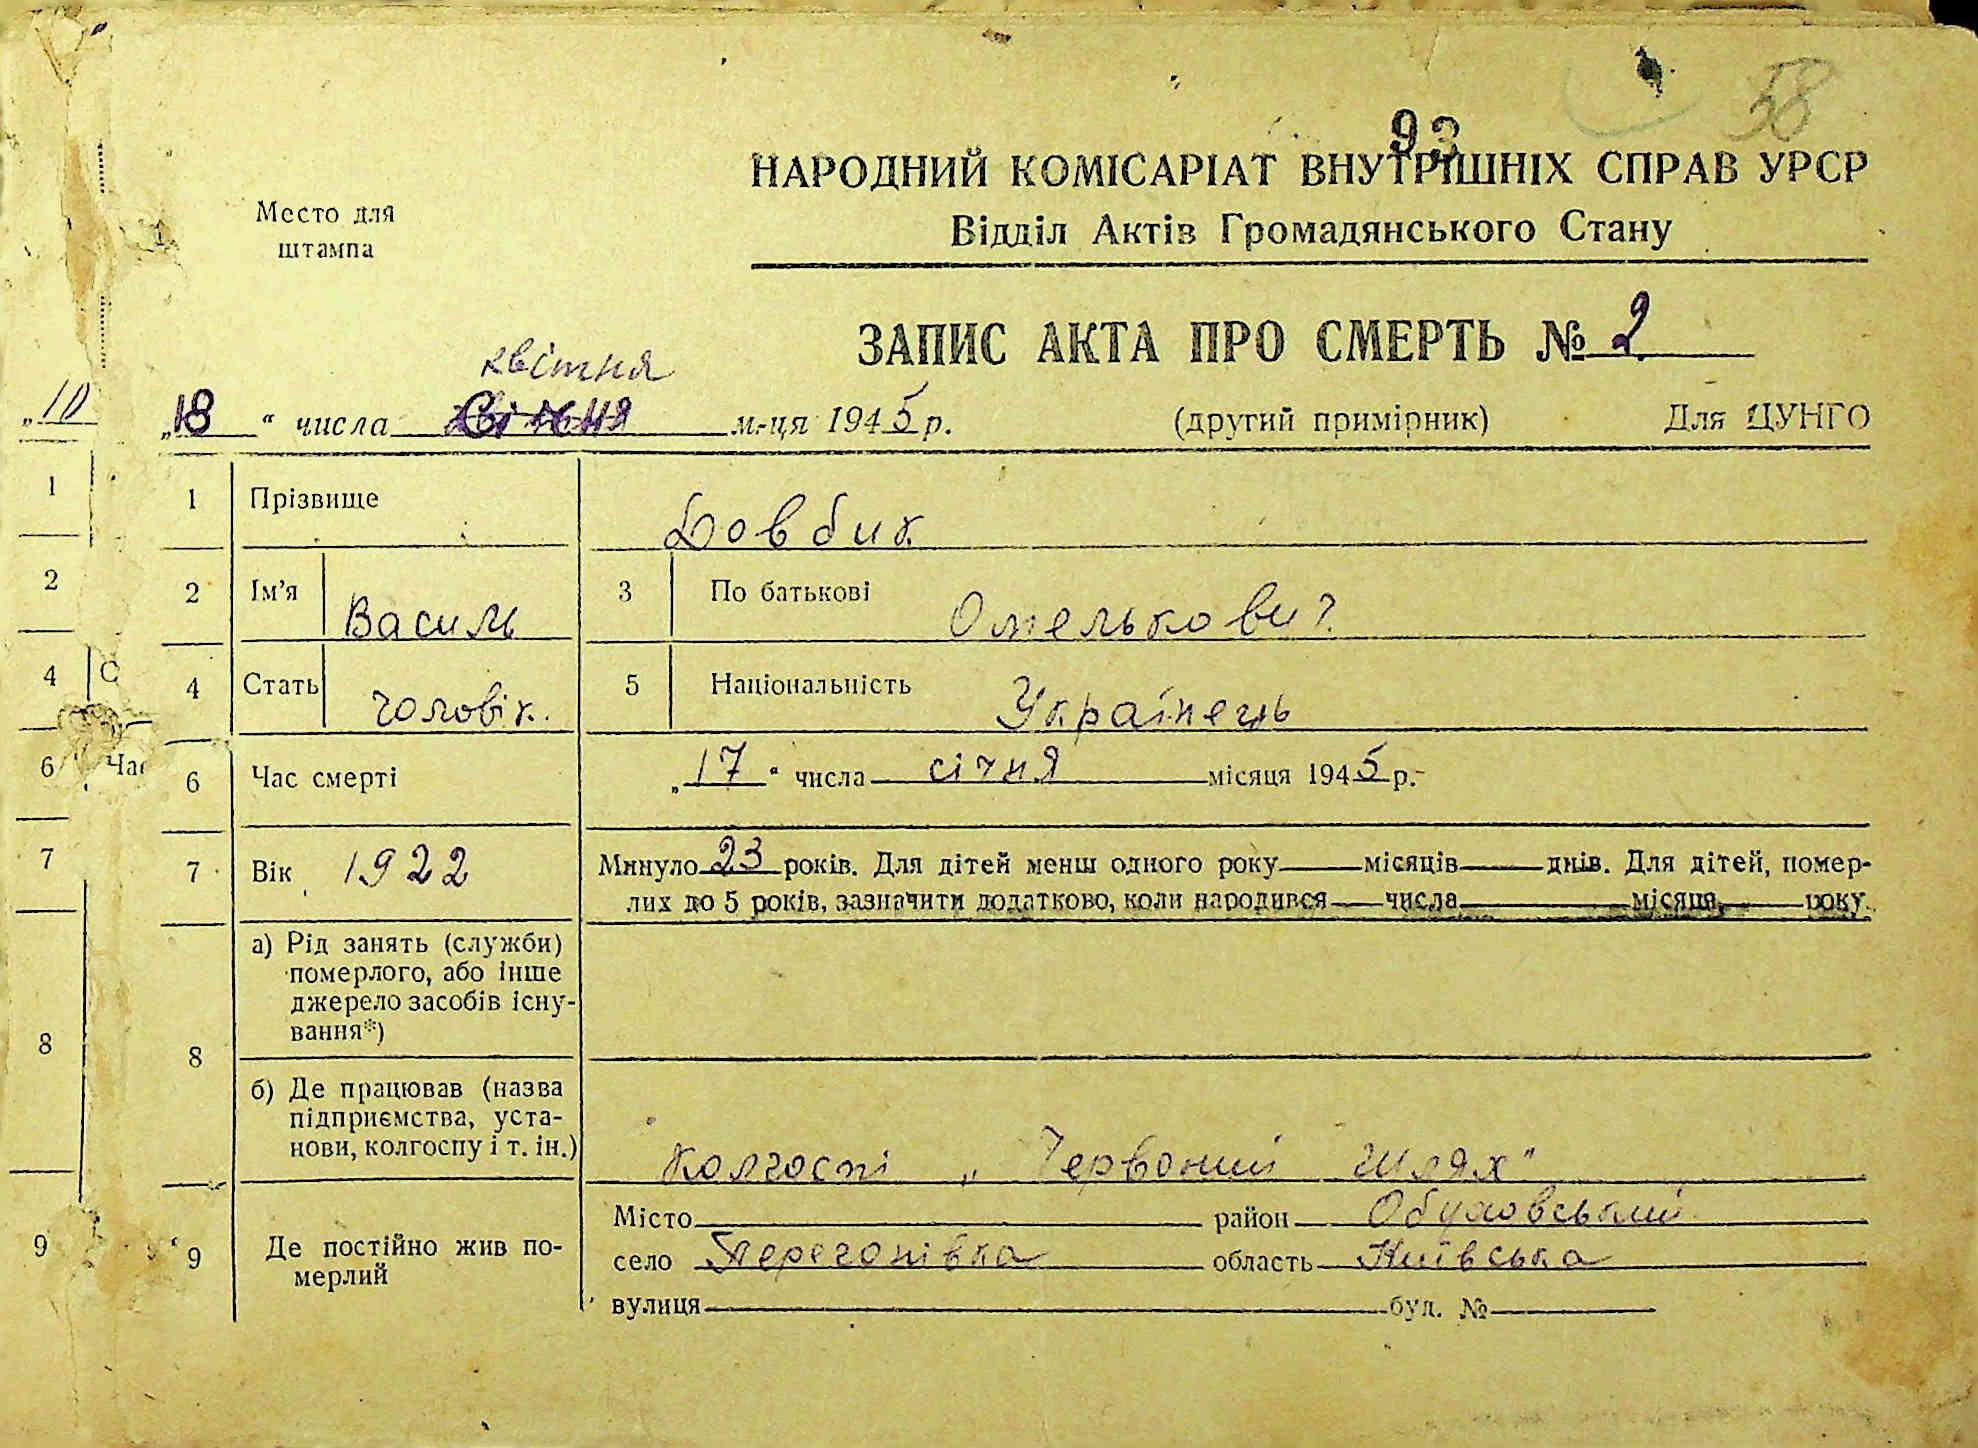 58
93
НАРОДНИЙ КОМІСАРІАТ ВНУТРІШНІХ СПРАВ УРСР
Место для
штампа
Відділ Актів Громадянського Стану
ЗАПИС АКТА ПРО СМЕРТЬ № 2
квітня
„18“ числа м-ця 1945 р. (другий примірник) Для ЦУНГО
1 Прізвище Довбик
2 Ім’я Василь 3 По батькові Омелькович
4 Стать чоловік. 5 Національність Українець
6 Час смерті „17“ числа січня місяця 1945 р.
7 Вік 1922 Минуло 23 років. Для дітей менш одного року місяців днів. Для дітей, помер-
лих до 5 років, зазначити додатково, коли народився числа місяця, року.
8 а) Рід занять (служби)
померлого, або інше
джерело засобів існу-
вання*)
б) Де працював (назва
підприємства, уста-
нови, колгоспу і т. ін.)
Колгоспі „Червоний Шлях"
9 Де постійно жив по-
мерлий
Місто район Обуховський
село Перегонівка область Київська
вулиця буд. №
„10
1
2
4 С
6 Час
7
8
9